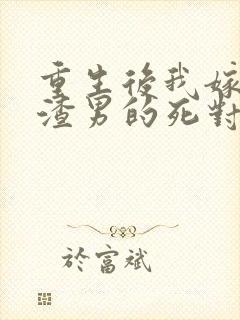 重生後我嫁
渣男的死對
於富斌